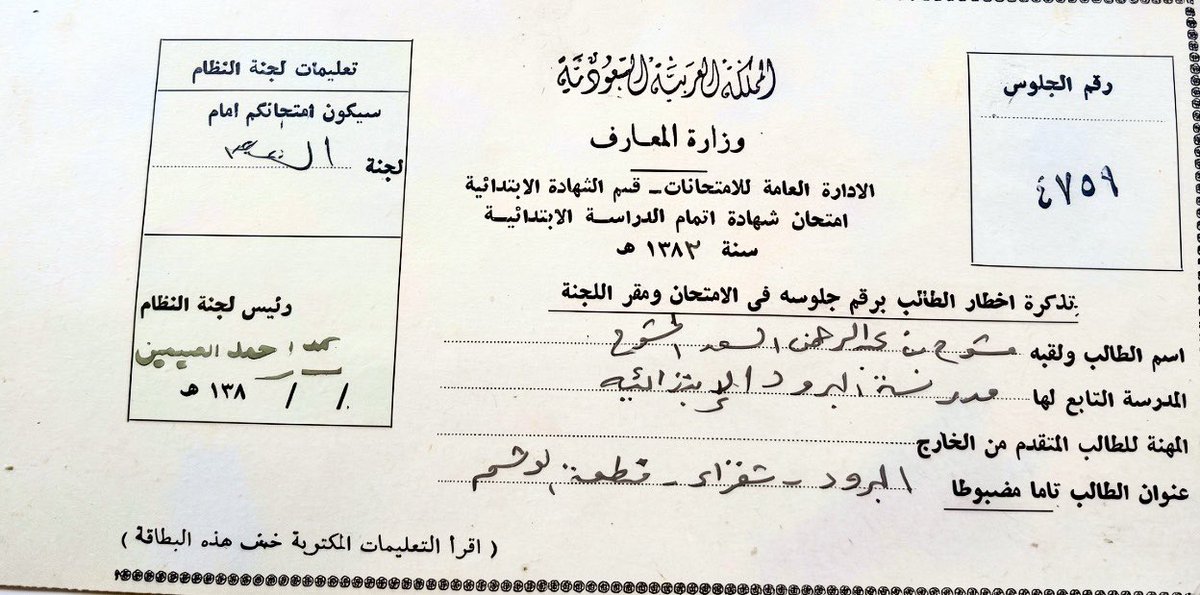 رقم الجلوس
٤٧٥٩
المملكة العربية السعودية
وزارة المعارف
الادارة العامة للامتحانات - قسم الشهادة الابتدائية
امتحان شهادة اتمام الدراسة الابتدائية
سنة ١٣٨٣ هـ
تعليمات لجنة النظام
سيكون امتحانكم امام
لجنة
رئيس لجنة النظام
حمد احمد الصيمين
/ / ١٣٨ هـ
تذكرة اخطار الطالب برقم جلوسه فى الامتحان ومقر اللجنة
اسم الطالب ولقبه مشوح بن عبدالرحمن السعد المشوح
المدرسة التابع لها مدرسة البرود الإبتدائيه
المهنة للطالب المتقدم من الخارج
عنوان الطالب تاما مضبوطا البرود - شقراء - منطقة الوشم
( اقرأ التعليمات المكتوبة خلف هذه البطاقة )